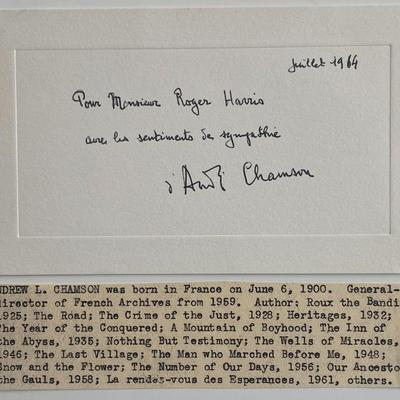 Juillet 1964
Pour Monsieur Roger Harris
avec les sentiments de sympathie
d'André Chamson
NDREW L. CHAMSON was born in France on June 6, 1900. General-
director of French Archives from 1959. Author: Roux the Bandi
1925; The Road; The Crime of the Just, 1928; Heritages, 1932;
The Year of the Conquered; A Mountain of Boyhood; The Inn of
the Abyss, 1935; Nothing But Testimony; The Wells of Miracles,
1946; The Last Village; The Man who Marched Before Me, 1948;
Snow and the Flower; The Number of Our Days, 1956; Our Ancesto
the Gauls, 1958; La rendez-vous des Esperances, 1961, others.